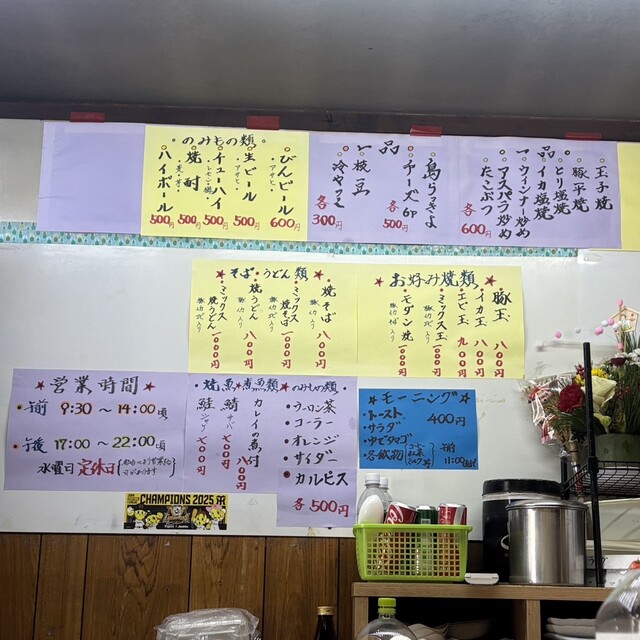 玉子焼
豚平焼
とり塩焼
イカ塩焼
一品
ウィンナー炒め
アスパラ炒め
たこぶつ
各600円
一品
鳥らっきょ
チーズ6P
各500円
枝豆
冷やっこ
各300円
のみもの類
びんビール
アサヒ
600円
生ビール
アサヒ
500円
チューハイ
500円
焼酎
麦・芋
500円
ハイボール
500円
お好み焼類
豚玉 八〇〇円
イカ玉 八〇〇円
エビ玉 九〇〇円
ミックス玉 一〇〇〇円
モダン焼 一〇〇〇円
★そば・うどん類★
焼そば 八〇〇円
ミックス焼そば 一〇〇〇円
焼うどん 八〇〇円
ミックス焼うどん 一〇〇〇円
★営業時間★
午前 9:30〜14:00頃
午後 17:00〜22:00頃
水曜日定休日
焼魚★煮魚類
カレイの煮付 八〇〇円
鯖 七〇〇円
鮭 七〇〇円
★のみもの類
ウーロン茶
コーラー
オレンジ
サイダー
カルピス
各500円
★モーニング★
トースト
サラダ
ゆでタマゴ
各飲物
コーヒー
紅茶
ミルク等
400円
午前
11:00迄
CHAMPIONS 2025